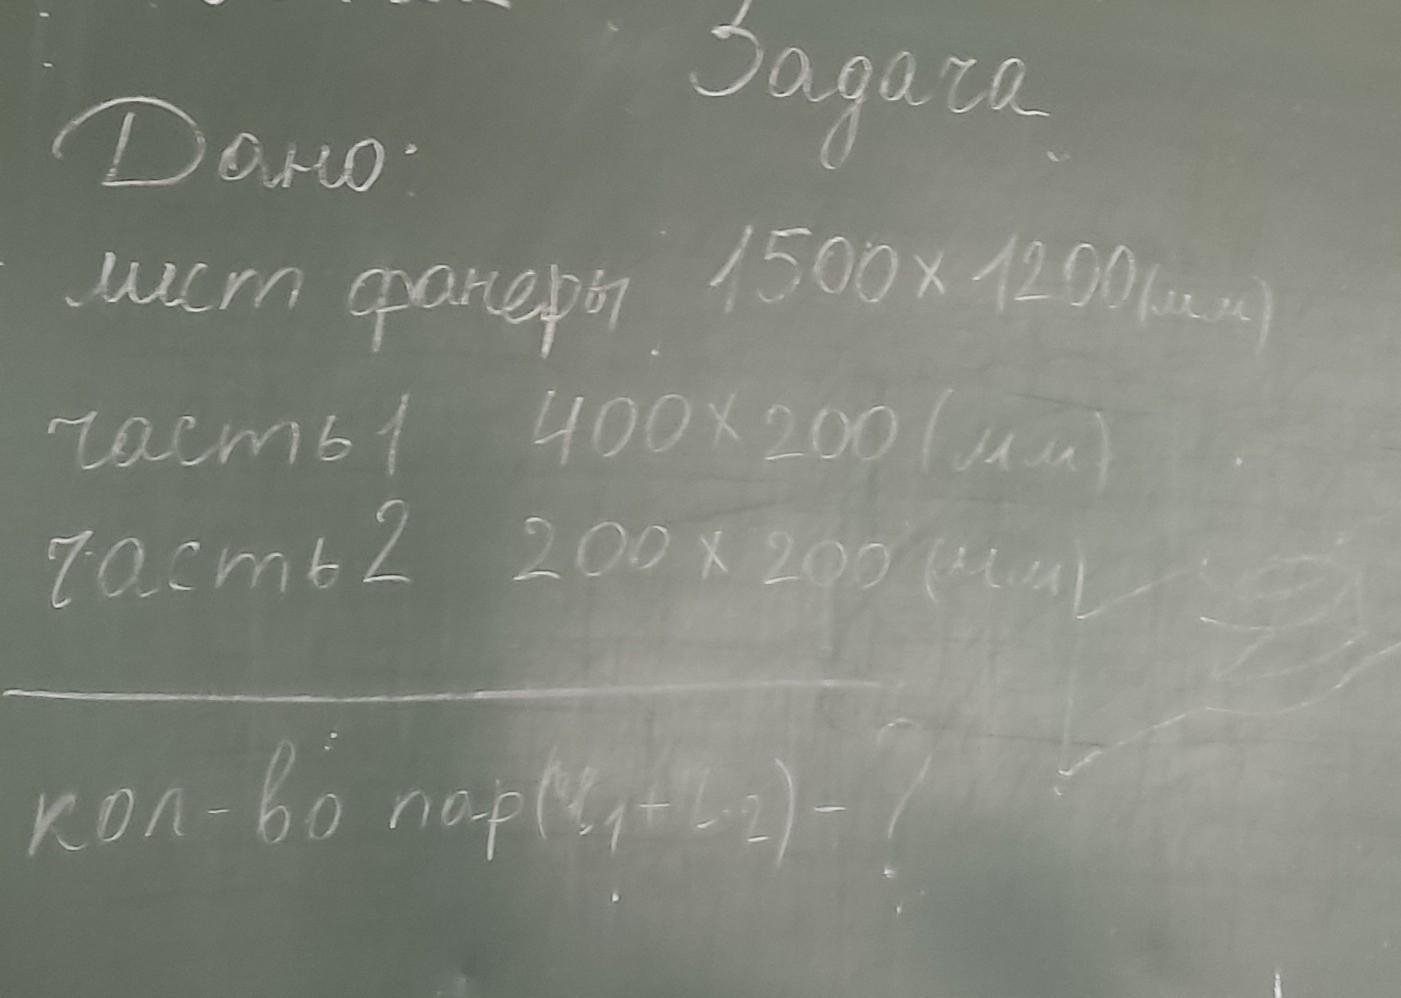 Задача
Дано:
лист фанеры 1500 х 1200 (мм)
часть 1 400 х 200 (мм)
часть 2 200 х 200 (мм)
кол-во пар (ч1 + ч2) - ?